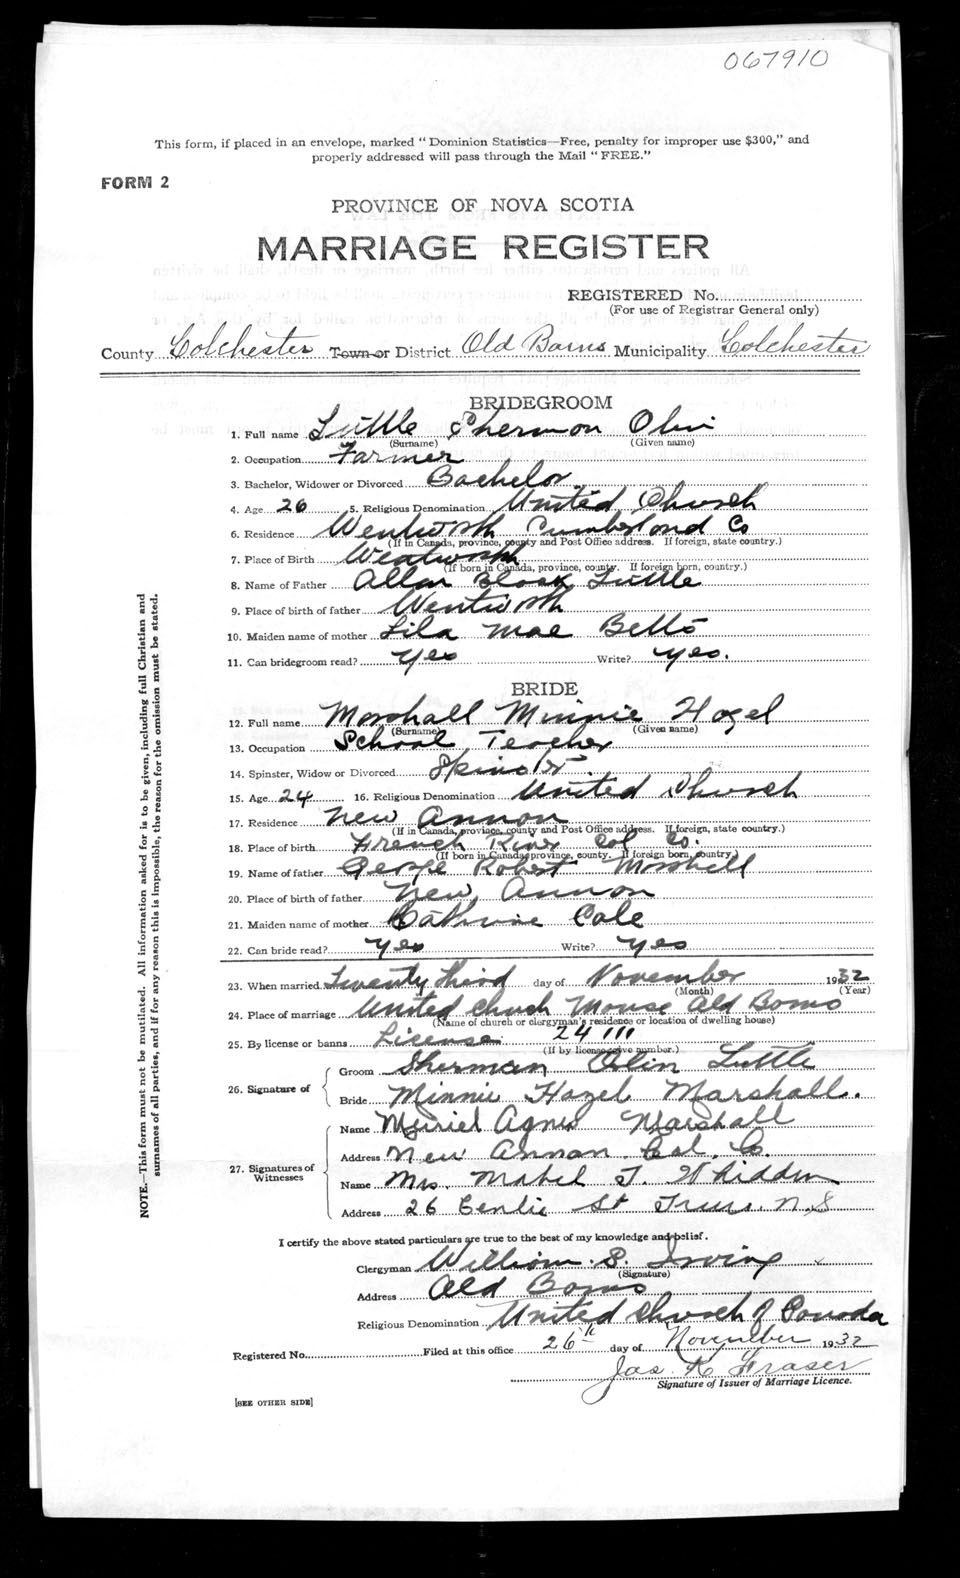 067910
This form, if placed in an envelope, marked "Dominion Statistics—Free, penalty for improper use $300," and
properly addressed will pass through the Mail "FREE."
FORM 2
PROVINCE OF NOVA SCOTIA
MARRIAGE REGISTER
REGISTERED No.
(For use of Registrar General only)
County Colchester Town or District Old Barns Municipality Colchester
BRIDEGROOM
1. Full name Tuttle Sherman Olin
(Surname) (Given name)
2. Occupation Farmer
3. Bachelor, Widower or Divorced Bachelor
4. Age 26 5. Religious Denomination United Church
6. Residence Wentworth Cumberland Co
(If in Canada, province, county and Post Office address. If foreign, state country.)
7. Place of Birth Wentworth
(If born in Canada, province, county. If foreign born, country.)
8. Name of Father Allan Black Tuttle
9. Place of birth of father Wentworth
10. Maiden name of mother Lila Mae Betts
11. Can bridegroom read? Yes Write? Yes.
BRIDE
12. Full name Marshall Minnie Hazel
(Surname) (Given name)
13. Occupation School Teacher
14. Spinster, Widow or Divorced Spinster
15. Age 24 16. Religious Denomination United Church
17. Residence New Annan
(If in Canada, province, county and Post Office address. If foreign, state country.)
18. Place of birth French River Col Co.
(If born in Canada, province, county. If foreign born, country.)
19. Name of father George Robert Marshall
20. Place of birth of father New Annan
21. Maiden name of mother Catherine Cole
22. Can bride read? Yes Write? Yes
23. When married Twenty Third day of November 1932
(Month) (Year)
24. Place of marriage United Church Manse Old Barns
(Name of church or clergyman's residence or location of dwelling house)
25. By license or banns License 24111
(If by license give number.)
26. Signature of
Groom Sherman Olin Tuttle
Bride Minnie Hazel Marshall.
27. Signatures of Witnesses
Name Muriel Agnes Marshall
Address New Annan Col. Co.
Name Mrs. Mabel T. Whidden
Address 26 St Truro. N.S
I certify the above stated particulars are true to the best of my knowledge and belief.
Clergyman William P. Irving
(Signature)
Address Old Barns
Religious Denomination United Church of Canada
Registered No. Filed at this office 26th day of November 1932
Jas. K Fraser
Signature of Issuer of Marriage Licence.
[SEE OTHER SIDE]
NOTE.—This form must not be mutilated. All information asked for is to be given, including full Christian and
surnames of all parties, and if for any reason this is impossible, the reason for the omission must be stated.